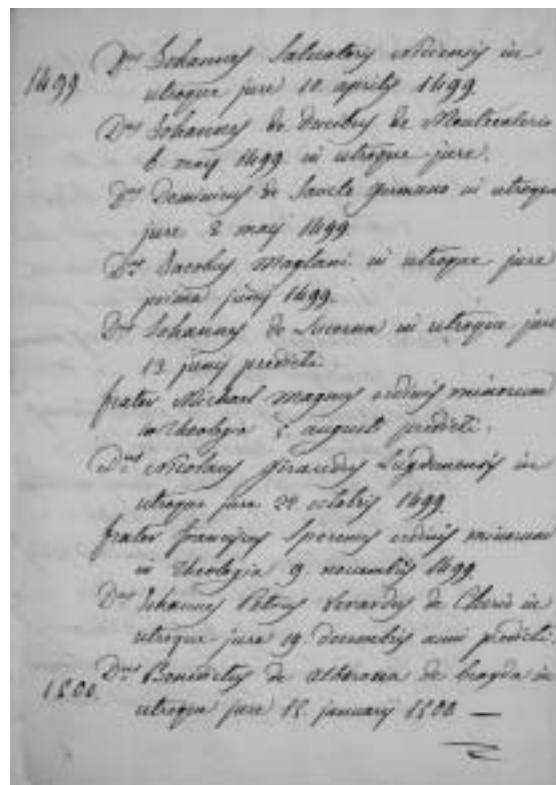 Dns Johannes Salvatoris Niciensis in
1499 utroque jure 10. aprilis 1499.
Dns Johannes de Ducibus de Montecalerio
6. maij 1499 in utroque jure.
Dns Dominicus de Sancto Germano in utroque
jure 8 maij 1499
Dns Jacobus Maglani in utroque jure
prima junij 1499.
Dns Johannes de Lucerna in utroque jure
13. junij predicti
frater Michael Magnus ordinis minorum
in Theologia 5. augusti predicti.
Dns Nicolaus Girardus Lugdunensis in
utroque jure 22. octobris 1499
frater franciscus ordinis minorum
in Theologia 9. novembris 1499
Dns Johannes Petrus de Cherio in
utroque jure 19. decembris anni predicti.
Dns Benedictus de de in
1500. utroque jure 15. januarij 1500 —